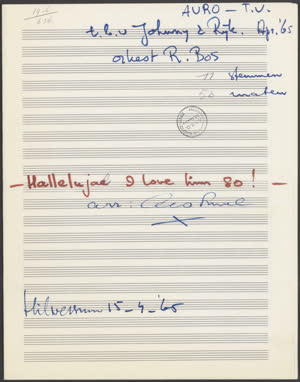 AVRO – T.V.
t.b.v Johnny & Rijk. Apr. '65
orkest R. Bos
11 stemmen
56 maten
– Halleluja I love him so! –
arr:
Hilversum 15-4-'65